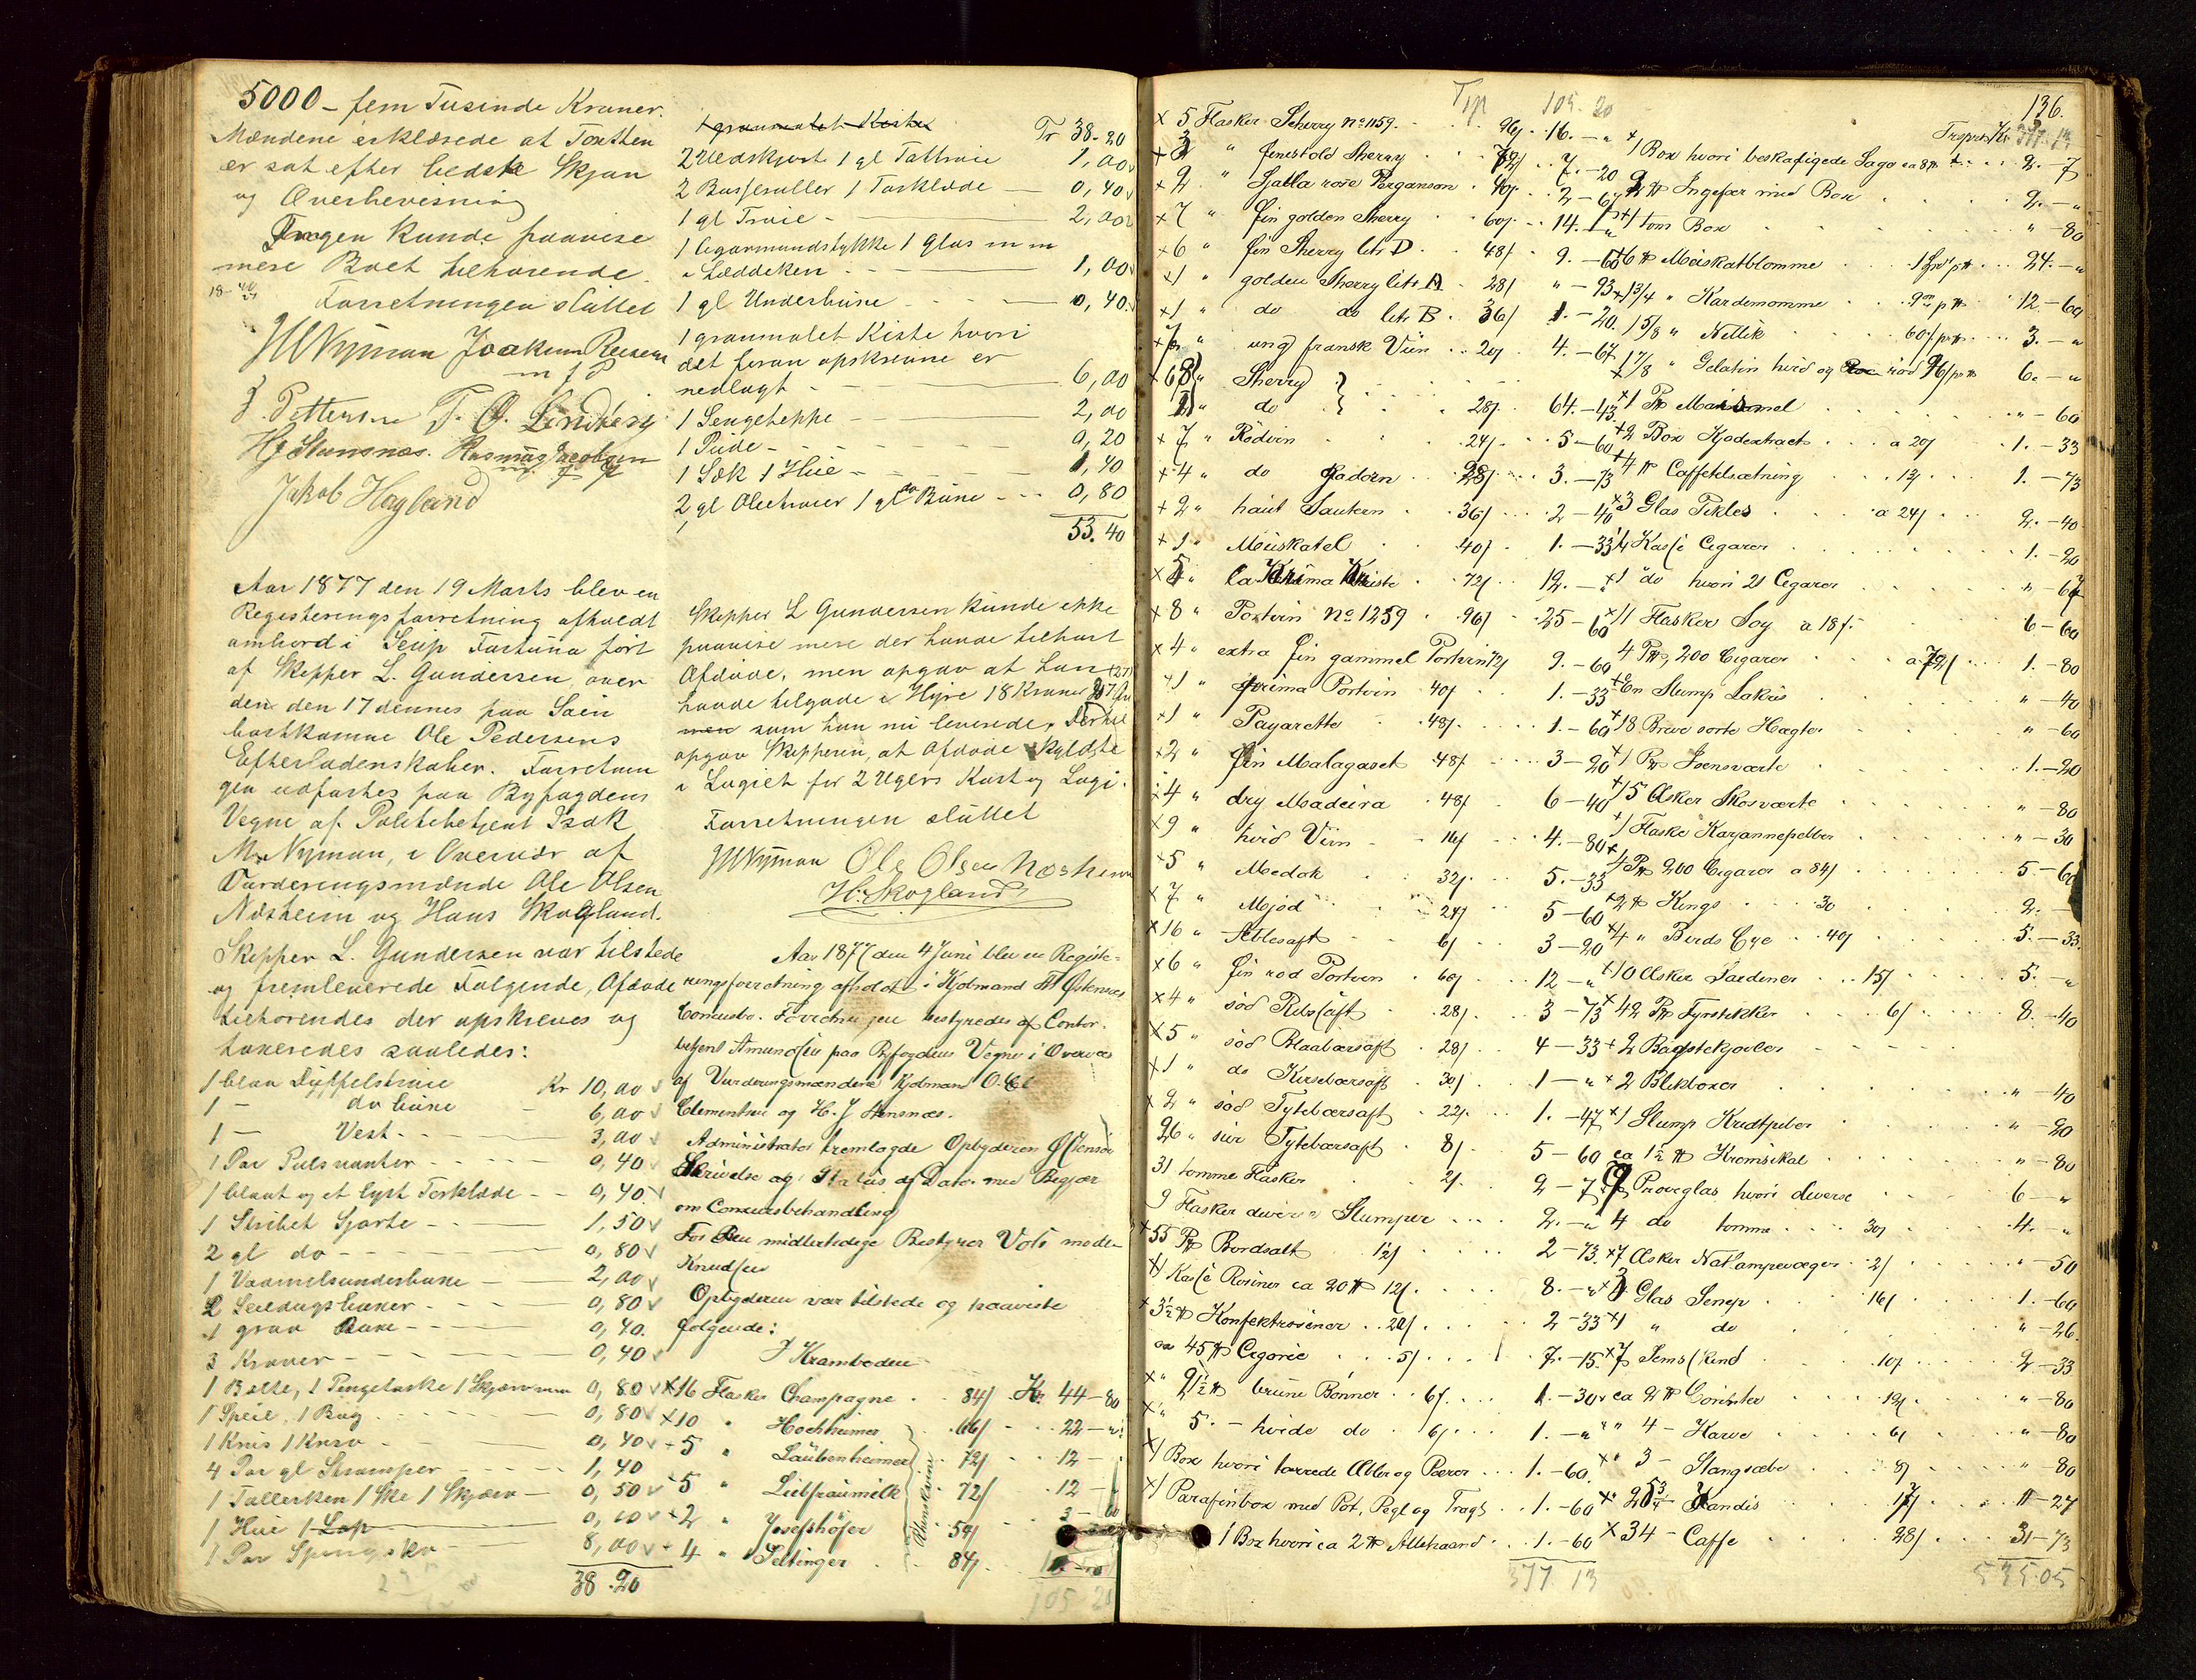 5000 - fem Tusinde Kroner.
Mændene erklærede at Taxten
er sat efter bedste Skjøn
og Overbevisning
Ingen kunde paavise
mere Boet tilhørende.
Forretningen sluttet
MNyman Joakim Reesen
m f P
J. Pettersen T. O. Lindberg
HJ Stensnæs. Rasmus Jacobsen
Jakob Hagland
Aar 1877 den 19 Marts blev en
Registeringsforretning afholdt
ombord i Skip Fortuna ført
af Skipper L. Gundersen over
den den 17 dennes paa Søen
bortkomne Ole Pedersens
Efterladenskaber. Forretnin
gen udførtes paa Byfogdens
Vegne af Politibetjent Isak
M. Nyman, i Overvær af
Vurderingsmænde Ole Olsen
Næsheim og Hans Skogland.
Skipper L. Gundersen var tilstede
og fremleverede Følgende, Afdøde
tilhørendes der opskreves og
taxeredes saaledes:
1 blaa Dyffelstrøie Kr 10,00
1 - do buxe - 6,00
1 - Vest - 3,00
1 Par Pulsvanter - 0,40
1 blaat og et lyst Tørklæde - 0,40
1 Stribet Sjorte - 1,50
2 gl do - 0,80
1 Vaamelsunderbuxe - 2,00
2 Seildugsbuxer - 0,80
1 graa Buxe - 0,40.
3 Kraver - 0,40
1 Bælte, 1 Pengetaske 1 Skjærv 0,80
1 Speil, 1 Bog - 0,80
1 Knis 1 Kurv - 0,40
4 Par gl Strømper - 1,40
1 Tallerken 1 Ske 1 Skjærv - 0,50
1 Hue 1 Lap - 0,00
1 Par Springsko - 8,00
38.20
1 graamalet Kiste
Tr 38-20
2 Uldskjort 1 gl Tattrøie 1,00
2 Busseruller 1 Tørklæde - 0,40
1 gl Trøie - 2,00
1 Cigarmundstykke 1 Glas m m
i Læddeken - 1,00
1 gl Underbuxe - 0,40
1 graamalet Kiste hvori
det foran opskrevne er
nedlagt - 6,00
1 Sengeteppe - 2,00
1 Pude - 0,20
1 Sæk 1 Hue - 1,40
2 gl Olietrøier 1 gl do Buxe - 0,80
53.40
Skipper L Gundersen kunde ikke
paavise mere der havde tilhørt
Afdøde, men opgav at han
havde tilgode i Hyre 18 Kroner
som han nu leverede. Derhos
opgav Skipperen, at Afdøde skyldte
i Logiet for 2 Ugers Kost og Logi.
Forretningen sluttet
MNyman Ole Olsen Næsheim
H. Skogland
Aar 1877 den 4 Juni blev en Registe-
ringsforretning afholdt i Kjøbmand Østensøes
Concursbo. Forretningen bestyredes af Contor-
betjent Amundsen paa Byfogdens Vegne i Overvær
af Vurderingsmændene Kjøbmand O.
Clementsen og H. J Stensnæs.
Administrator fremlagde Opbyderen Østensøes
Skrivelse og Status af Dato med Begjær
om Concursbehandling
For den midlertidige Bestyrer Vold mødte
Knudsen
Opbyderen var tilstede og paaviste
følgende:
I Kramboden
x 16 Flasker Champagne . 84/ Kr. 44-80
x 10 " Hochheimer . 66/ . . 22-"
- 5 " Laubenheimer . 72/ . . 12 -
- 5 " Liebfraumilk . 72/ . 12 - "
x 2 " Josefshöfer . 54/ . 3-60
- 4 " Zeltinger . . 84/
Rhinskvine
105 20
Trp 105-20
x 5 Flasker Scherry No 1159. . 96/ . 16. - "
x 3 " fineste old Sherry . . 72/ . . 7. - 20
x 2 " Sjatla rose Perganson . 40/ . . 2 - 67
x 7 " fin golden Sherry . . 60/ . . 14. - "
x 6 " fin Sherry litr D . . 48/ . 9. - 60
x 1 " golden Sherry litr A . 28/ " - 93
x 1 " do do litr B . 36/ 1. - 20.
x 7 " ung fransk Viin . . 20/ . 4. - 67
x 68 " Sherry }
2 " do } . . 28/ . . 64. - 43
x 7 " Rödvin . " . 24/ . . 5 - 60
x 4 " do Gadörn . . 28/ . . . 3. - 73
x 2 " haut Sautern . . 36/ . . . 2 - 40
x 1 " Muskatel . . 40/ . 1. - 33
x 5 " La Krima Kriste . . 72/ . . 12. - "
x 8 " Portvin No 1259 . . 96/ . . 25 - 60
x 4 " extra fin gammel Portvin 72/ 9. - 60
x 1 " prima Portvin . 40/ . . 1. - 33
x 1 " Payarette . . 48/ . . . 1. - 60
x 2 " fin Malagaset . 48/ . . . 3 - 20
x 4 " dry Madeira . 48/ . 6 - 40
x 9 " hvid Viin . - . 16/ . . 4. - 80
x 5 " Medok . . 32/ . . . 5. - 33
x 7 " Mjød . . . 24/ . . 5 - 60
x 16 " Æblesaft . . 6/ . . 3 - 20
x 6 " fin rød Portvin . 60/ . . 12 - "
x 4 " sød Ribssaft . . 28/ . . 3 - 73
x 5 " sød Blaabærsaft . 28/ . . 4 - 33
x 1 " do Kirsebærsaft . 30/ . . 1 - "
x 2 " sød Tytebærsaft . 22/ . . 1. - 47
26 " sur Tytebærsaft . 8/ . . 5 - 60
31 tomme Flasker . . 2/. . . 2 - 7
9 Flasker diverse Slumper . . . . 2. - "
x 55 Pd Bordsalt . . 1½/ . . . . 2 - 73.
x 1 Kasse Rosiner ca 20 Pd 12/. . . . 8. - "
x 3½ Pd Konfektrosiner . . 20/. . . . 2 - 33
ca 45 Pd Cigorie . . . 5/. . . . 7. - 15.
x " 21½ Pd brune Bønner . . 6/. . . 1. - 30
x " 5 . - hvide do . . 6/. . . . 1. - "
x 1 Box hvori tørrede Æbler og Pærer . . . 1. - 60.
x 1 Parafinbox med Pot, Pegl og Tragt . . 1. - 60
1 Box hvori ca 2 Pd Allehaande . . . 1. - 60
377 13
136.
Trsprt Kr 377.13
x 1 Box hvori beskadigede Sago ca 8 Pd . . . . 2. - 7
2 Pd Ingefær med Box . . . . 2. - "
x 1 tom Box . . . . " - 80
6 Pd Muskatblomme . . . . 24. - "
x 1 3/4 " Kardemomme . . . . 12 - 60
1 5/8 " Nellik . . . 60/ pr Pd . . . 3. - "
x 1 7/8 " Gelatin hvid og rød 96/ pr Pd 6. - "
x 1 Pk Maismel . . . . " - 60
x 2 Box Kjødextract . . . a 20/ . . 1. - 33
x 4 Pd Caffetilsætning . . . 13/ . . . 1. - 73
x 3 Glas Pikles . . . a 24/ . . . 2. - 40
¼ Kasse Cigarer . . . . 1. - 20
x 1 do hvori 21 Cigarer . . . . " - 67
x 11 Flasker Soy a 18/. . . . 6 - 60
4 Pk, 200 Cigarer . . a 72/ . . . 1. - 80
x En Slump Lakris . . . " - 40
x 18 Breve sorte Hægter . . . " - 60
x 1 Pk Isensværte . . . 1. - 20
x 15 Æsker Skosværte . . . " - 80
x 1 Flaske Karjannepebber . . . " - 30
x 4 Pk 200 Cigarer a 84/ . . . 5 - 60
x 2 Pd Kings . . . 30 . . . 2. -
x 4 " Birds Eye . . . 40/ . . . 5. - 33.
x 10 Æsker Sardiner . . . 15/ . . . 5. - "
x 42 Pk Fyrstikker . . . 6/ . . . 8. - 40
x 2 Bagstekjævler - - - -
x 2 Blikboxer . . . " - 40
x 1 Slump Krudtpiber . . . " - 20
ca 1½ Pd Kromsikal . . . " - 80
9 Prøveglas hvori diverse . . . 6 - "
4 do tomme . . . 30/ . . . 4. - "
x 7 Æsker Natlampevæger . . 2/ . . . " - 50
x 3 Glas Senep . . . 16/ . . . 1. - 60
x 1 " do . . . " - 26.
x 7 Semsskind . . . 10/ . . . 2 - 33
ca 2 Pd Corinter . . . 12/. . . . " - 80
" " 4 - Karve . . . 6/ . . . " - 80
x " 3 - Stangsæbe . . . 8/ . . . " - 80
x " 25 3/4 - Kandis . . . 13/ . . . 11 - 27
x 34 - Caffe . . . 28/ . . . 31 - 73
535.05